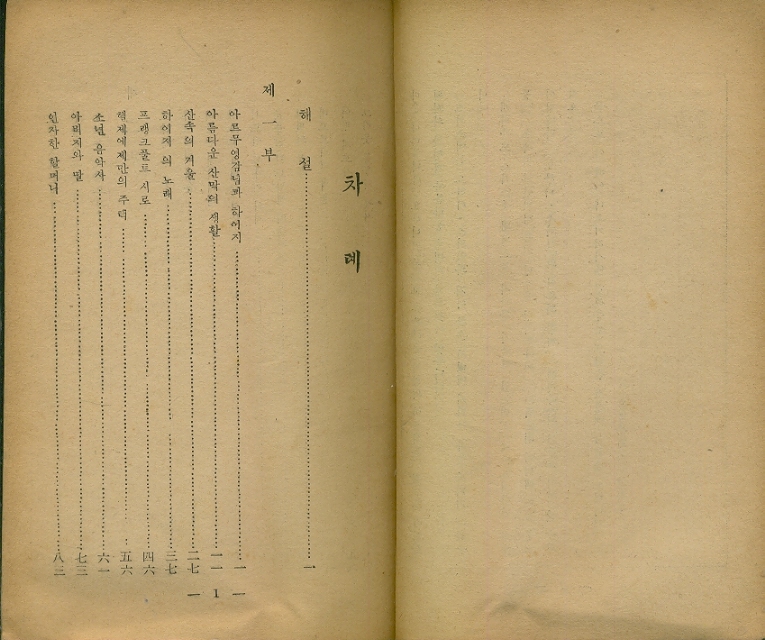 차례
해설 一
제一부
아르무영감님과 하이지 一
아름다운 산막의 생활 一一
산속의 겨울 二七
하이지의 노래 三七
프랭크풀트 시로 四六
의 주덕 五六
소년 음악사 六一
아버지와 딸 七三
인자한 할머니 八三
— 1 —